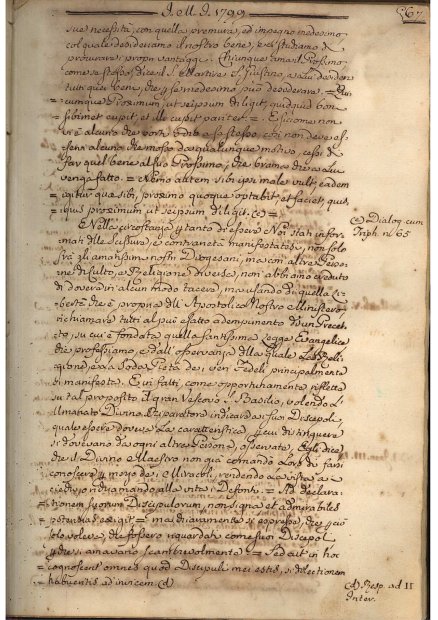 J. M. J. 1799
567
sue necessità, con quella premura, ed impegno medesimo
col quale desideriamo il nostro bene, e ci studiamo di
procurare i proprj vantaggi. Chiunque ama il Prossimo
come se stesso, dice il S. Martire S. Giustino, a lui desidera
tutti quei beni, che per se medesimo può desiderare. = Qui
= cumque Proximum, ut seipsum diligit, quidquid boni
= sibimet cupit, et illi cupit pariter. = E siccome non
vi è alcuno che porti odio a se stesso, così non deve es-
servi alcuno che mosso da qualunque motivo, cessi di
far quel bene al suo Prossimo, che brama che a lui
venga fatto. = Nemo autem sibi ipsi male vult; eadem
igitur quæ sibi, proximo quoque optabit et faciet, quis-
quis proximum ut seipsum diligit. (c) =
(c) Dialog. cum
Triph. n. 65
Nelle circostanze per tanto di essere Noi stati infor-
mati delle scissure, e contrarietà manifestatesi, non solo
fra gli amatissimi nostri Diogesani, ma con altre Perso-
ne di Culto, e Religione diversa, non abbiamo creduto
di dovere in alcun modo tacere, ma usando di quella li-
bertà che è propria dell' Apostolico Nostro Ministero
richiamare tutti al più esatto adempimento d'un Precet-
to, su cui è fondata quella santissima Legge Evangelica
che professiamo, e dall' osservanza della quale la Reli-
gione, e la soda Pietà de' veri Fedeli principalmente
si manifesta. E in fatti, come opportunamente riflette
su tal proposito il gran Vescovo S. Basilio, volendo l'
Umanato Divino Riparatore indicare a' suoi Discepoli,
quale esser dovea la caratteristica, per cui distinguere
si dovevano da ogni altra Persona, osservate, Egli dice
che il Divino Maestro non già comandò Loro di farsi
conoscere per mezzo de' Miracoli, rendendo la vista a'
ciechi, o richiamando alla vita i Defonti. = Ad declara-
= tionem suorum Discipulorum, non signa et admirabiles
= potentias exigit = ma chiaramente si espresse, che per ciò
solo voleva, che fossero riguardati come suoi Discepoli
perchè si amavano scambievolmente. = Sed ait in hoc
= cognoscent omnes quod Discipuli mei estis, si dilectionem
= habueritis ad invicem (d)
(d) Resp. ad II
Inter.